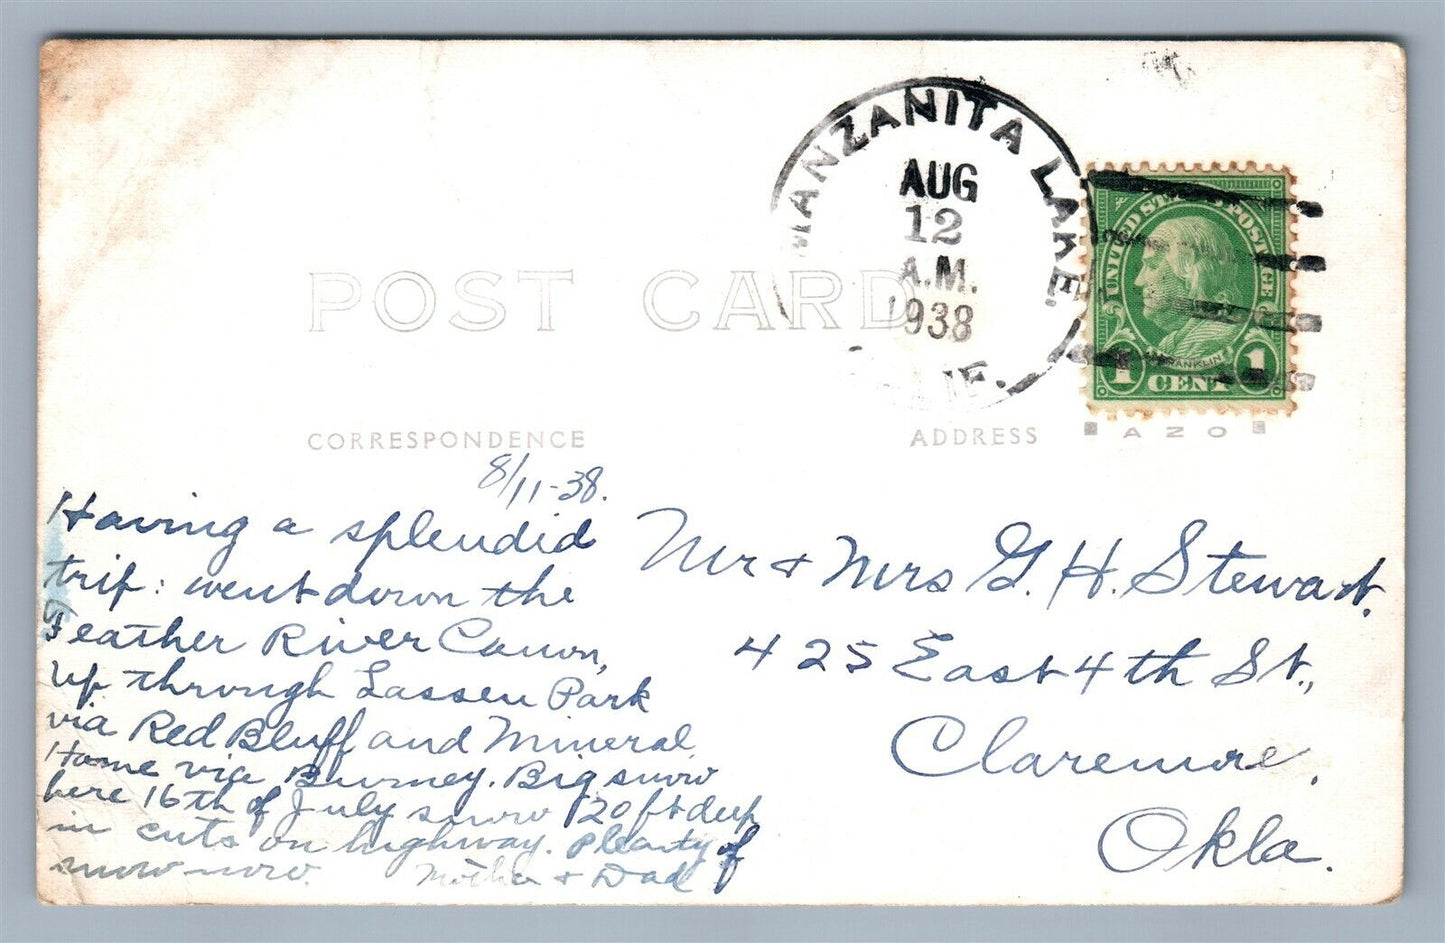 MANZANITA LAKE.
AUG
12
A.M.
1938
CALIF.
UNITED STATES POSTAGE
FRANKLIN
1 CENT 1
POST CARD
CORRESPONDENCE
ADDRESS
A Z O
8/11-38.
Having a splendid
trip: went down the
Feather River Canon,
up through Lassen Park
via Red Bluff and Mineral
Home via Burney. Big snow
here 16th of July snow 20 ft deep
in cuts on highway. Plenty of
snow now.
Mother & Dad
Mr & Mrs G. H. Stewart.
425 East 4th St.,
Claremore,
Okla.